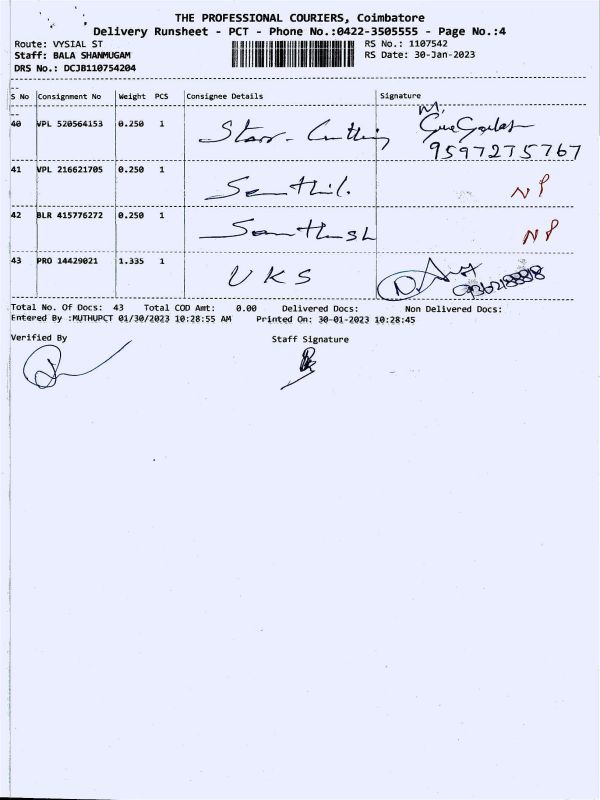 THE PROFESSIONAL COURIERS, Coimbatore
Delivery Runsheet - PCT - Phone No.:0422-3505555 - Page No.:4
Route: VYSIAL ST RS No.: 1107542
Staff: BALA SHANMUGAM RS Date: 30-Jan-2023
DRS No.: DCJB110754204
S No Consignment No Weight PCS Consignee Details Signature
40 VPL 520564153 0.250 1 Starr
9597275767
41 VPL 216621705 0.250 1 Senthil. NP
42 BLR 415776272 0.250 1 Santhosh NP
43 PRO 14429021 1.335 1 UKS
Total No. Of Docs: 43 Total COD Amt: 0.00 Delivered Docs: Non Delivered Docs:
Entered By :MUTHUPCT 01/30/2023 10:28:55 AM Printed On: 30-01-2023 10:28:45
Verified By Staff Signature